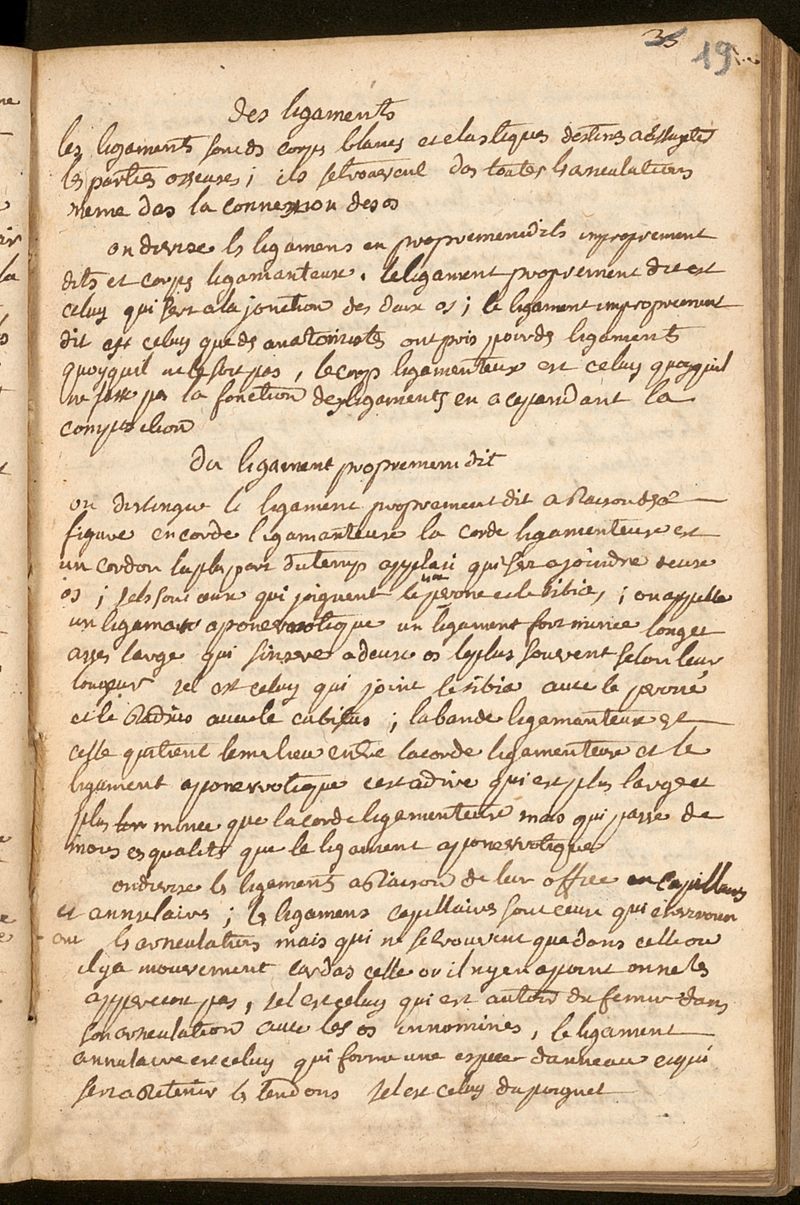 35 19
des ligaments
les ligaments sont ds corps blancs et elastiques destines a assujetir
les parties osseuses ; ils se trouvent das toutes ls articulations
meme das la connexion des os
on divise ls ligamens en proprement dits improprement
dits et corps ligamanteux . le ligament proprement dit est
celuy qui sert a la jonction des deux os ; le ligament improprement
dit est celuy que ds anatomistes ont pris pour ds ligaments
quoyquil ne le soit pas , le corps ligamenteux est celuy quoyquil
ne fasse pas la fonction des ligaments en a cependant la
composition
Du ligament proprement dit
on distingue le ligament proprement dit a Raison de sa
figure en corde ligamanteuse la corde ligamenteuse est
un cordon la plus part du temps applati qui sert a joindre deux
os ; tels sont ceux qui joignent le perone et le tibia ; on appelle
un ligamant aponevrotique un ligament fort mince long et
asses large qui sinsere a deux os le plus souvent selon leur
longueur tel est celuy qui joint le tibia avec le perone
et le Radius avec le cubitus ; la bande ligamanteuse est
celle qui tient le milieu entre la corde ligamenteuse et le
ligament aponevrotique cest a dire qui est plus large et
plus mince que la corde ligamenteuse mais qui passe de
moins en qualite que le ligament aponevrotique
on divise ls ligaments a Raison de leur office en capsillaires
et annulaires ; ls ligamens capsillaires sont ceux qui environn
ent ls articulations mais qui ne se trouvent que dans celle ou
il y a mouvement car das celle ou il ny en a point on ne ls
appercoit pas , tel est celuy qui est autour du femur dans
son articulation avec les os innominés , le ligament
annulaire est celuy qui forme une espece danneau et qui
sert a Retenir ls tendons tel est celuy du poignet